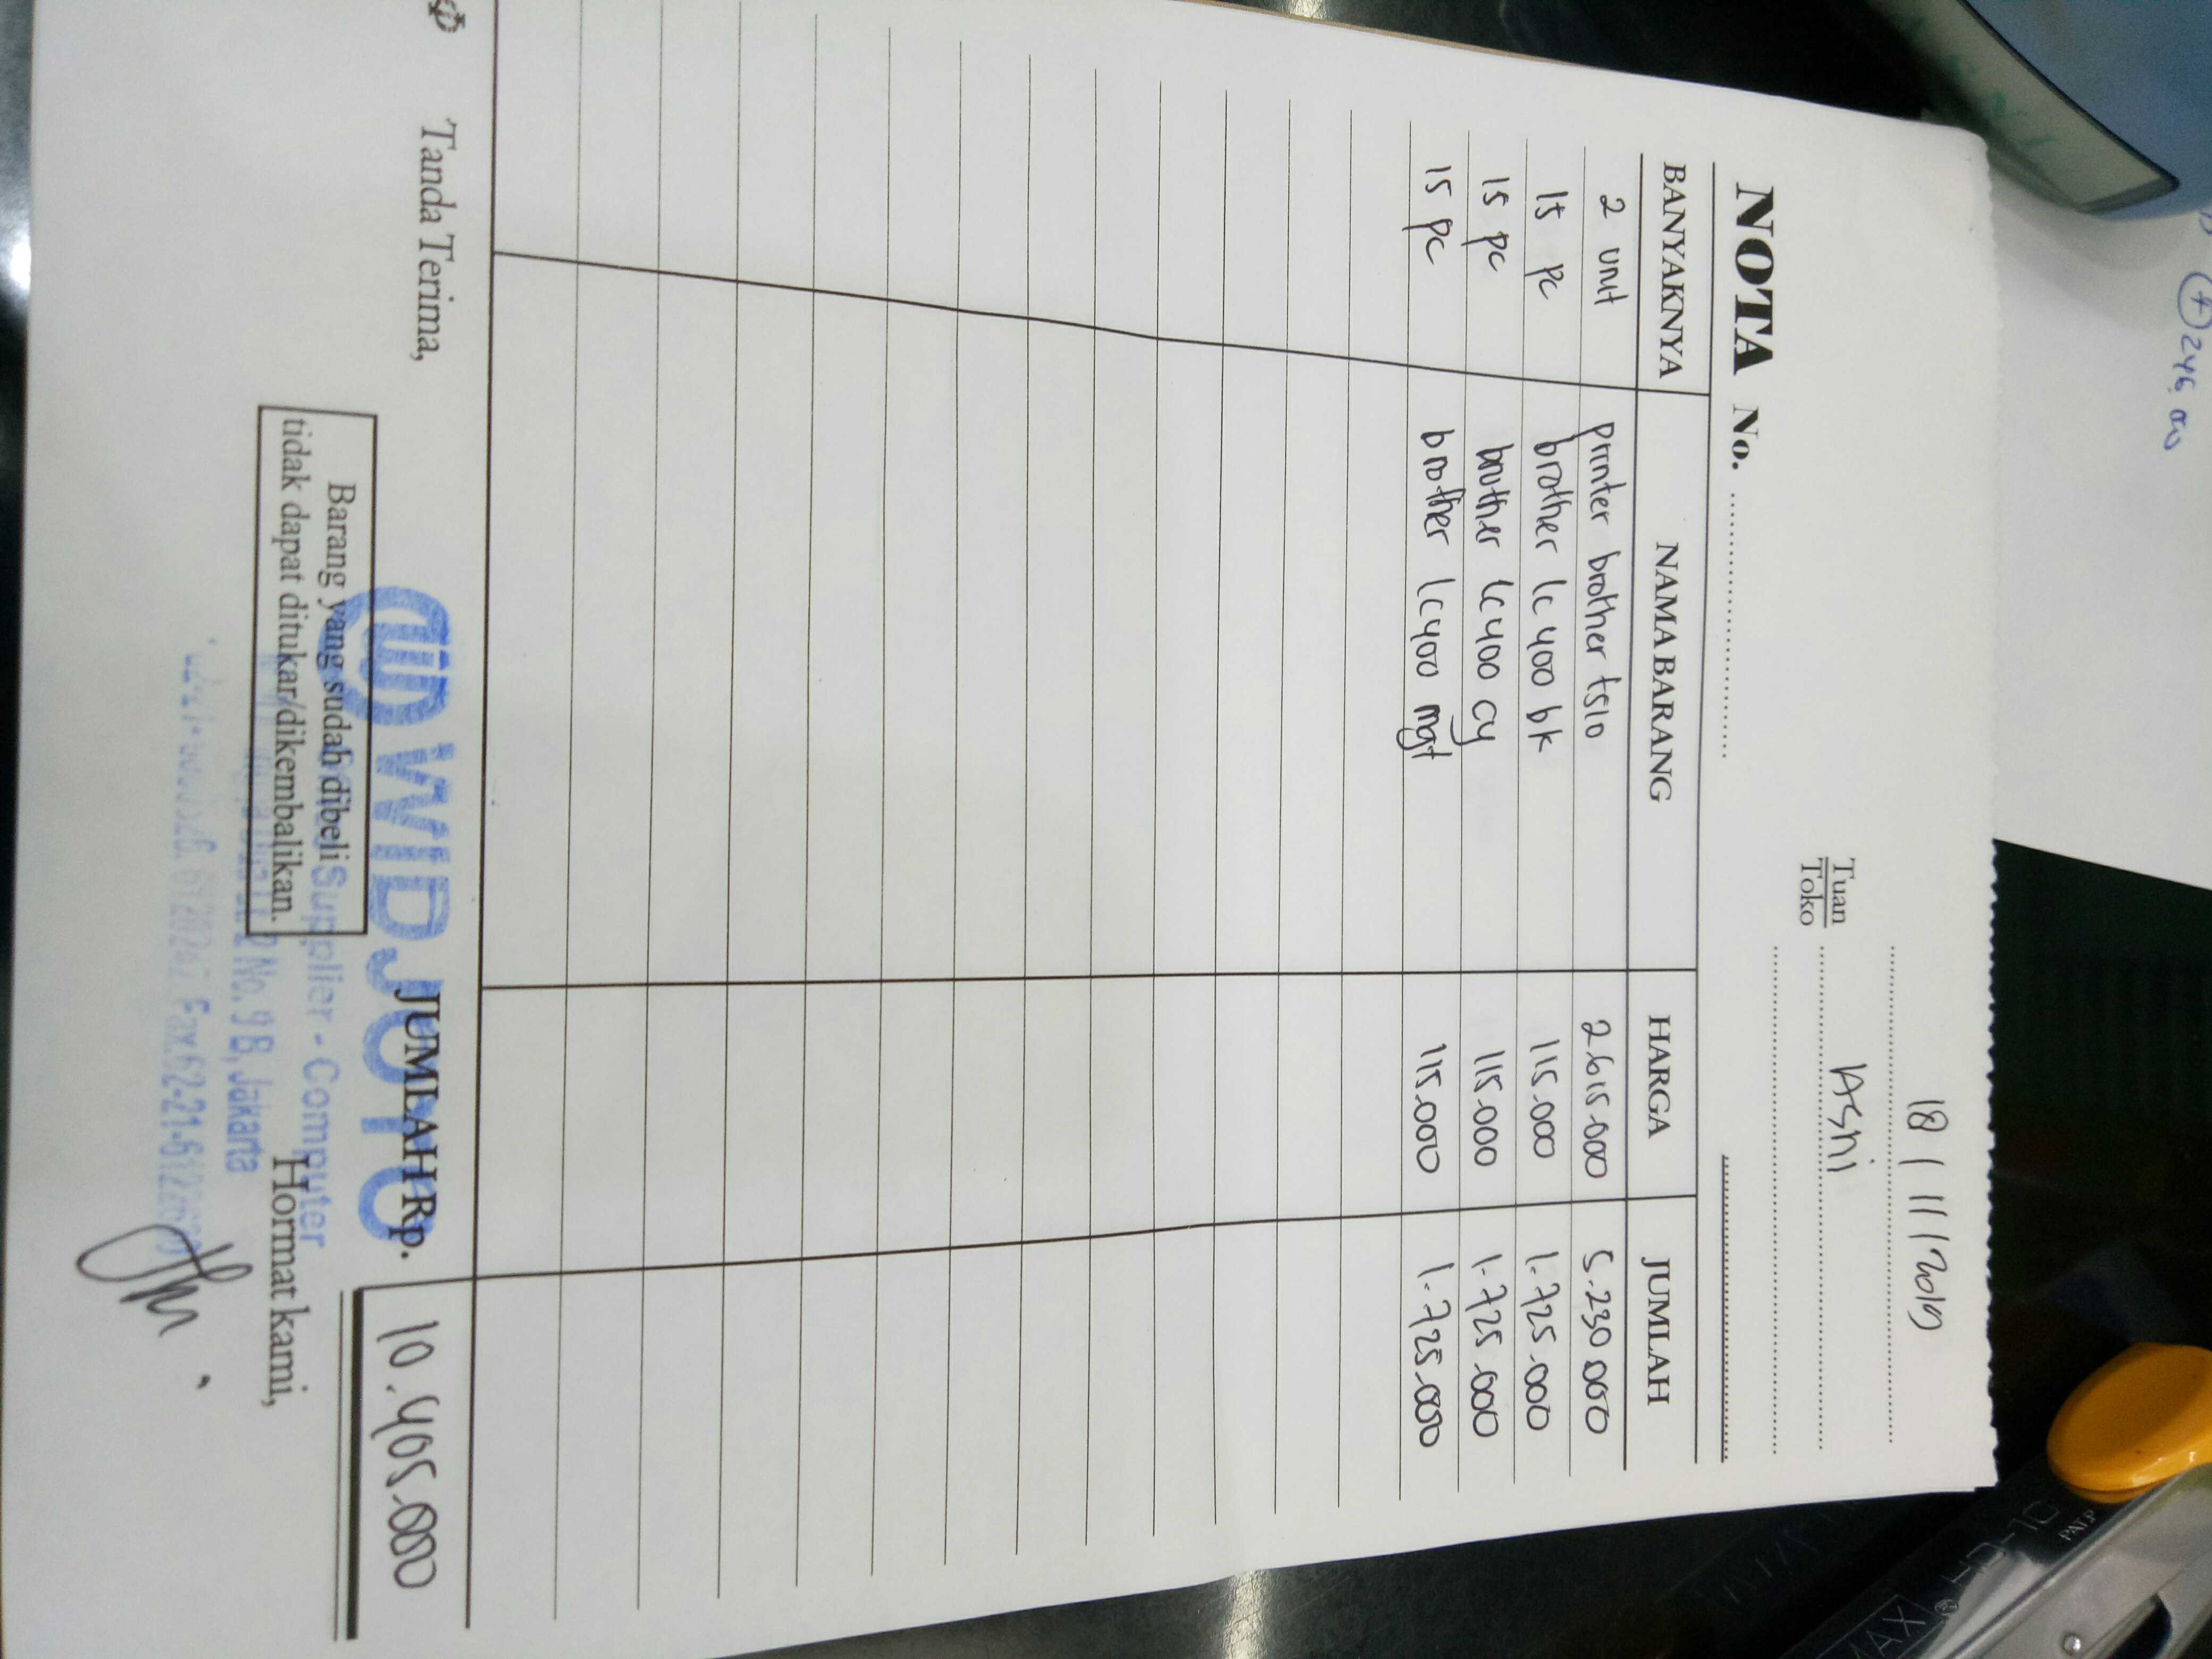 18 / 11 / 2019
Tuan
Toko
Asni
NOTA No.
BANYAKNYA NAMA BARANG HARGA JUMLAH
2 unit printer brother t510 2.615.000 5.230.000
15 pc brother lc 400 bk 115.000 1.725.000
15 pc brother lc 400 cy 115.000 1.725.000
15 pc brother lc 400 mgt 115.000 1.725.000
JUMLAH Rp. 10.405.000
Tanda Terima,
Barang yang sudah dibeli
tidak dapat ditukar/dikembalikan.
Hormat kami,
WIDJOJO
Supplier - Computer
No. 9 B, Jakarta
Fax.62-21-612
+ 246.000
HD-10
MAX
PAT.P